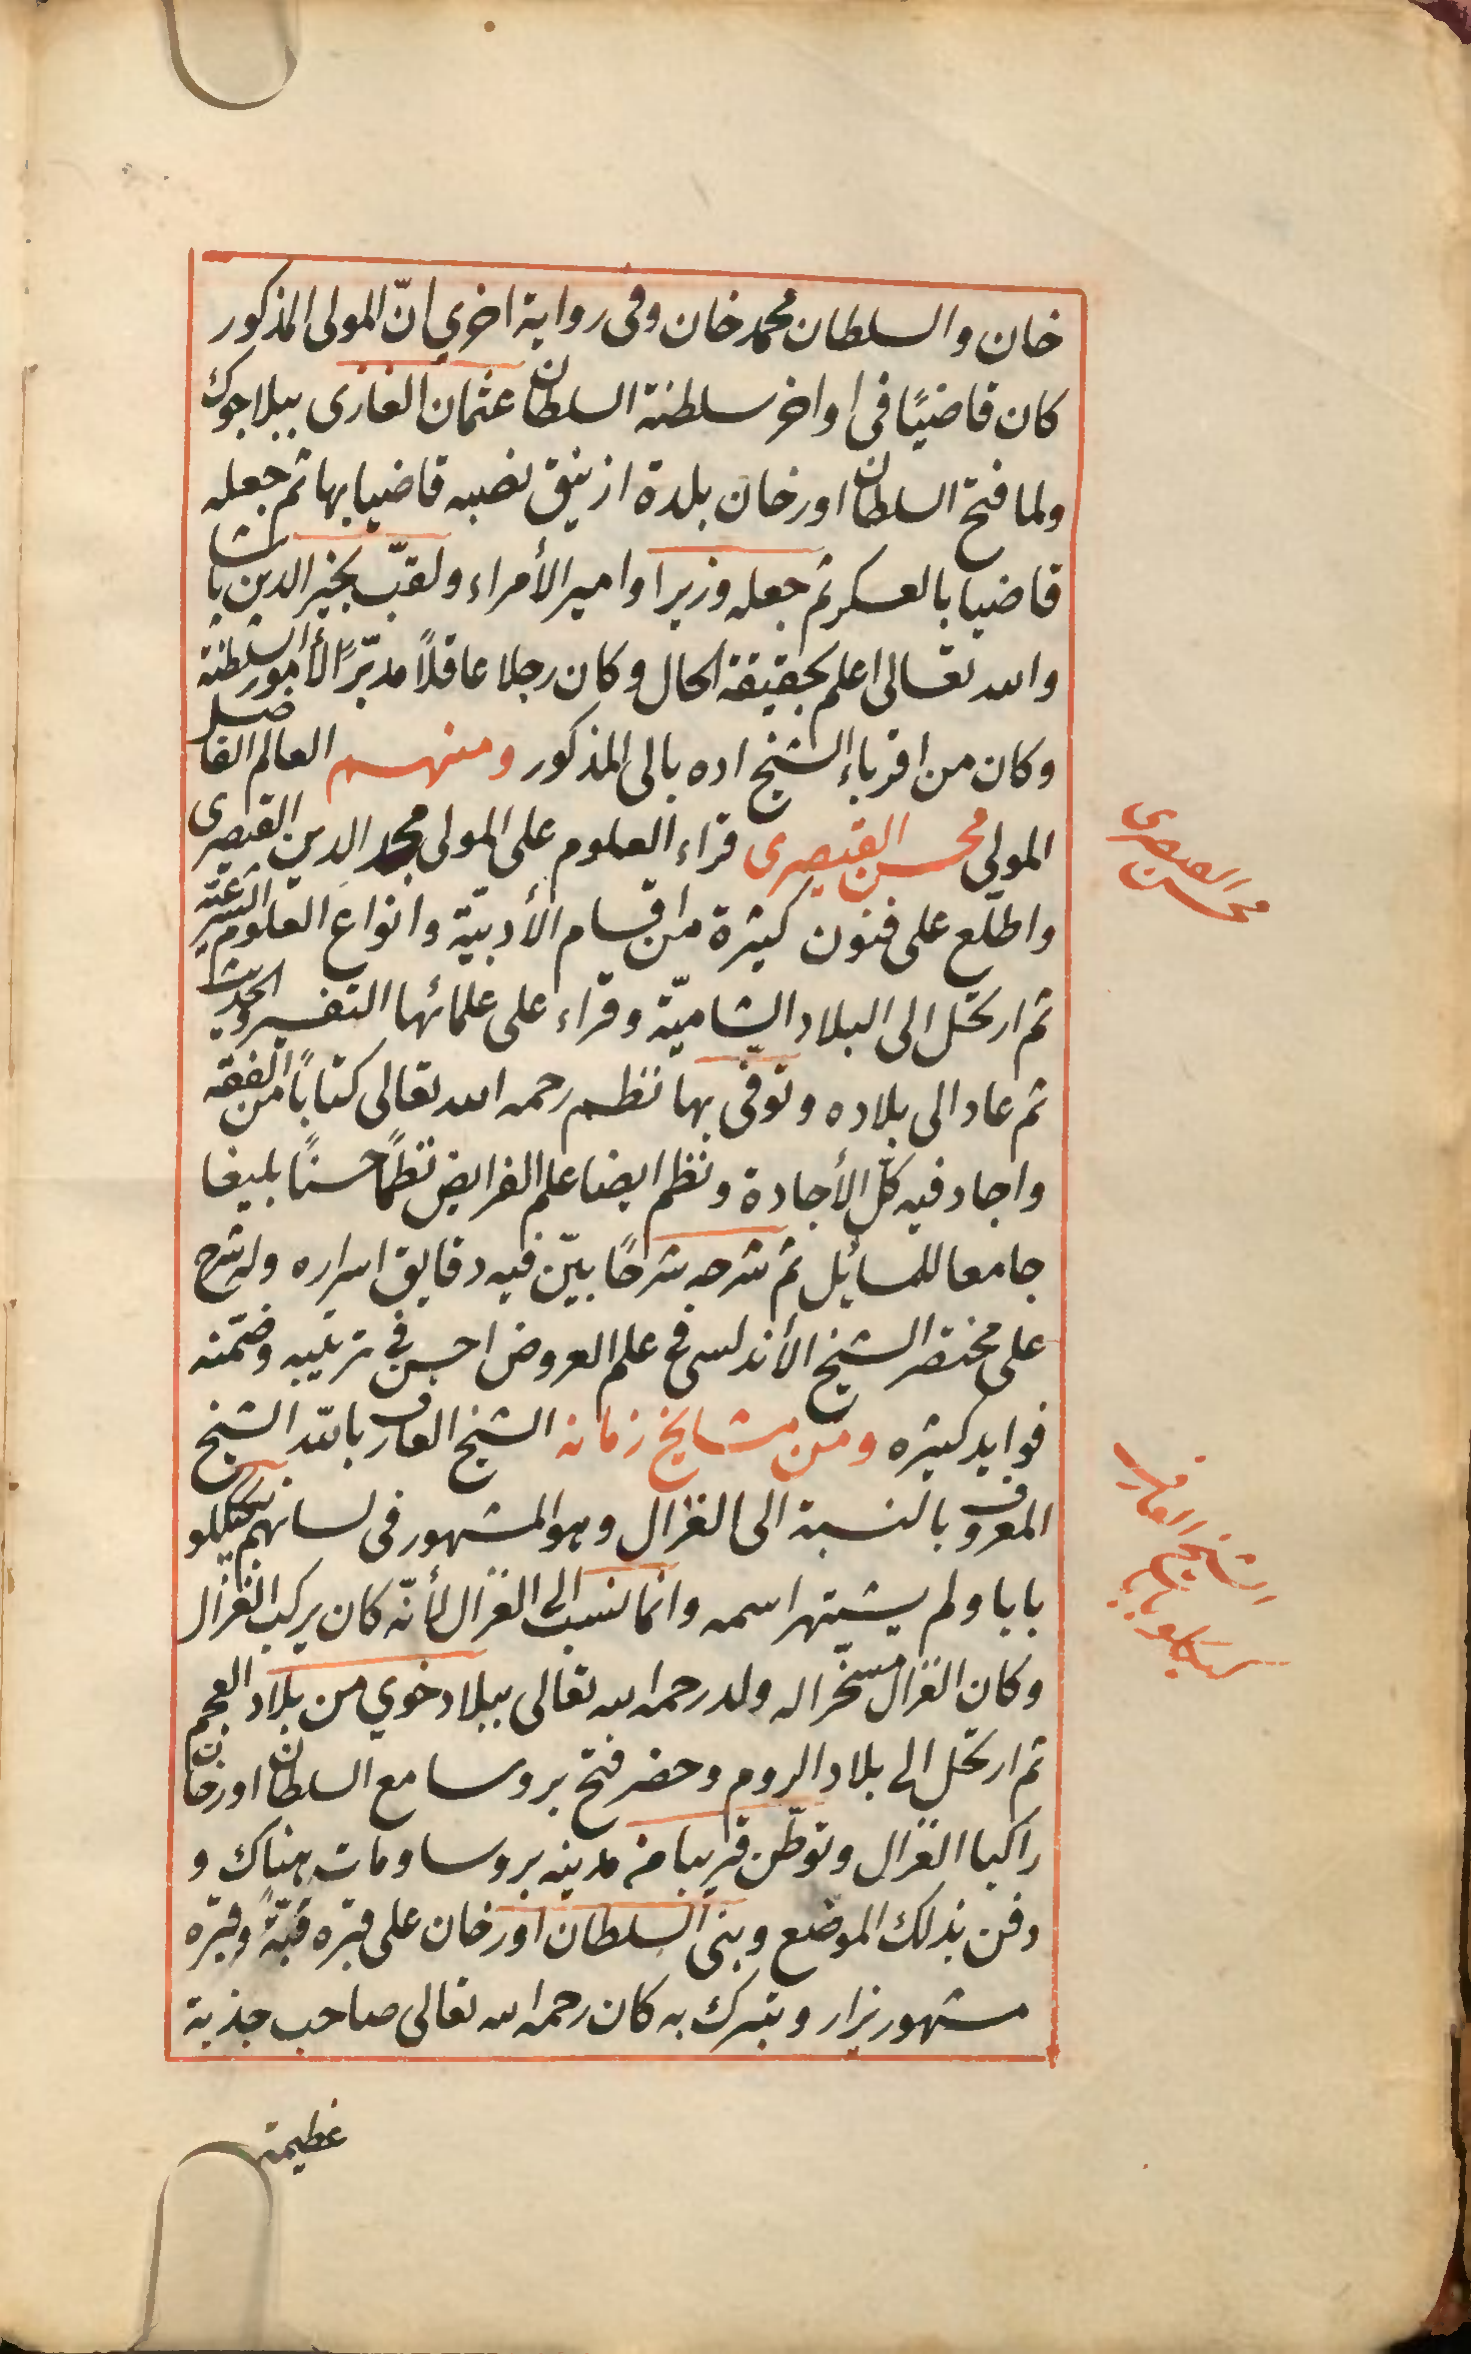 خان والسلطان محمد خان وفى رواية اخرى انّ المولى المذكور
كان قاضيًا فى اواخر سلطنة السلطان عثمان الغازى ببلاجوك
ولما فتح السلطان اورخان بلدة ازنيق نصبه قاضيا بها ثم جعله
قاضيا بالعسكر ثم جعله وزيرا وامير الأمراء ولقّب بخير الدين باشا
والله تعالى اعلم بحقيقة الحال وكان رجلا عاقلاً مدبّرًا لأمور السلطنة
وكان من اقرباء الشيخ اده بالى المذكور ومنهم العالم الفاضل
المولى محسن القيصرى قراء العلوم على المولى مجد الدين القيصرى
محسن القيصرى
واطلّع على فنون كثيرة من اقسام الأدبيّة وانواع العلوم الشرعيّة
ثم ارتحل الى البلاد الشاميّة وقراء على علمائها التفسير والحديث
ثم عاد الى بلاده وتوفّى بها نظم رحمه الله تعالى كتابًا من الفقه
واجاد فيه كلّ الأجادة ونظم ايضا علم الفرايض نظمًا حسنًا بليغا
جامعا للمسائل ثم شرحه شرحًا بيّن فيه دقايق اسراره وله شرح
على مختصر الشيخ الأندلسى فى علم العروض احسن فى ترتيبه وضمّنه
فوايد كثيره ومن مشايخ زمانه الشيخ العارف بالله الشيخ
الشيخ العارف
كيكلو بابا
المعروف بالنسبة الى الغزال وهو المشهور فى لسانهم بكيكلو
بابا ولم يشتهر اسمه وانما نسب الى الغزال لأنّه كان يركب الغزال
وكان الغزال مسخّرا له ولد رحمه الله تعالى ببلاد خوي من بلاد العجم
ثم ارتحل الى بلاد الروم وحضر فتح بروسا مع السلطان اورخان
راكبا الغزال وتوطّن قريبا من مدينه بروسا ومات هناك و
دفن بذلك الموضع وبنى السلطان اورخان على قبره قبّةً وقبره
مشهور يزار ويتبرك به كان رحمه الله تعالى صاحب جذبة
عظيمة